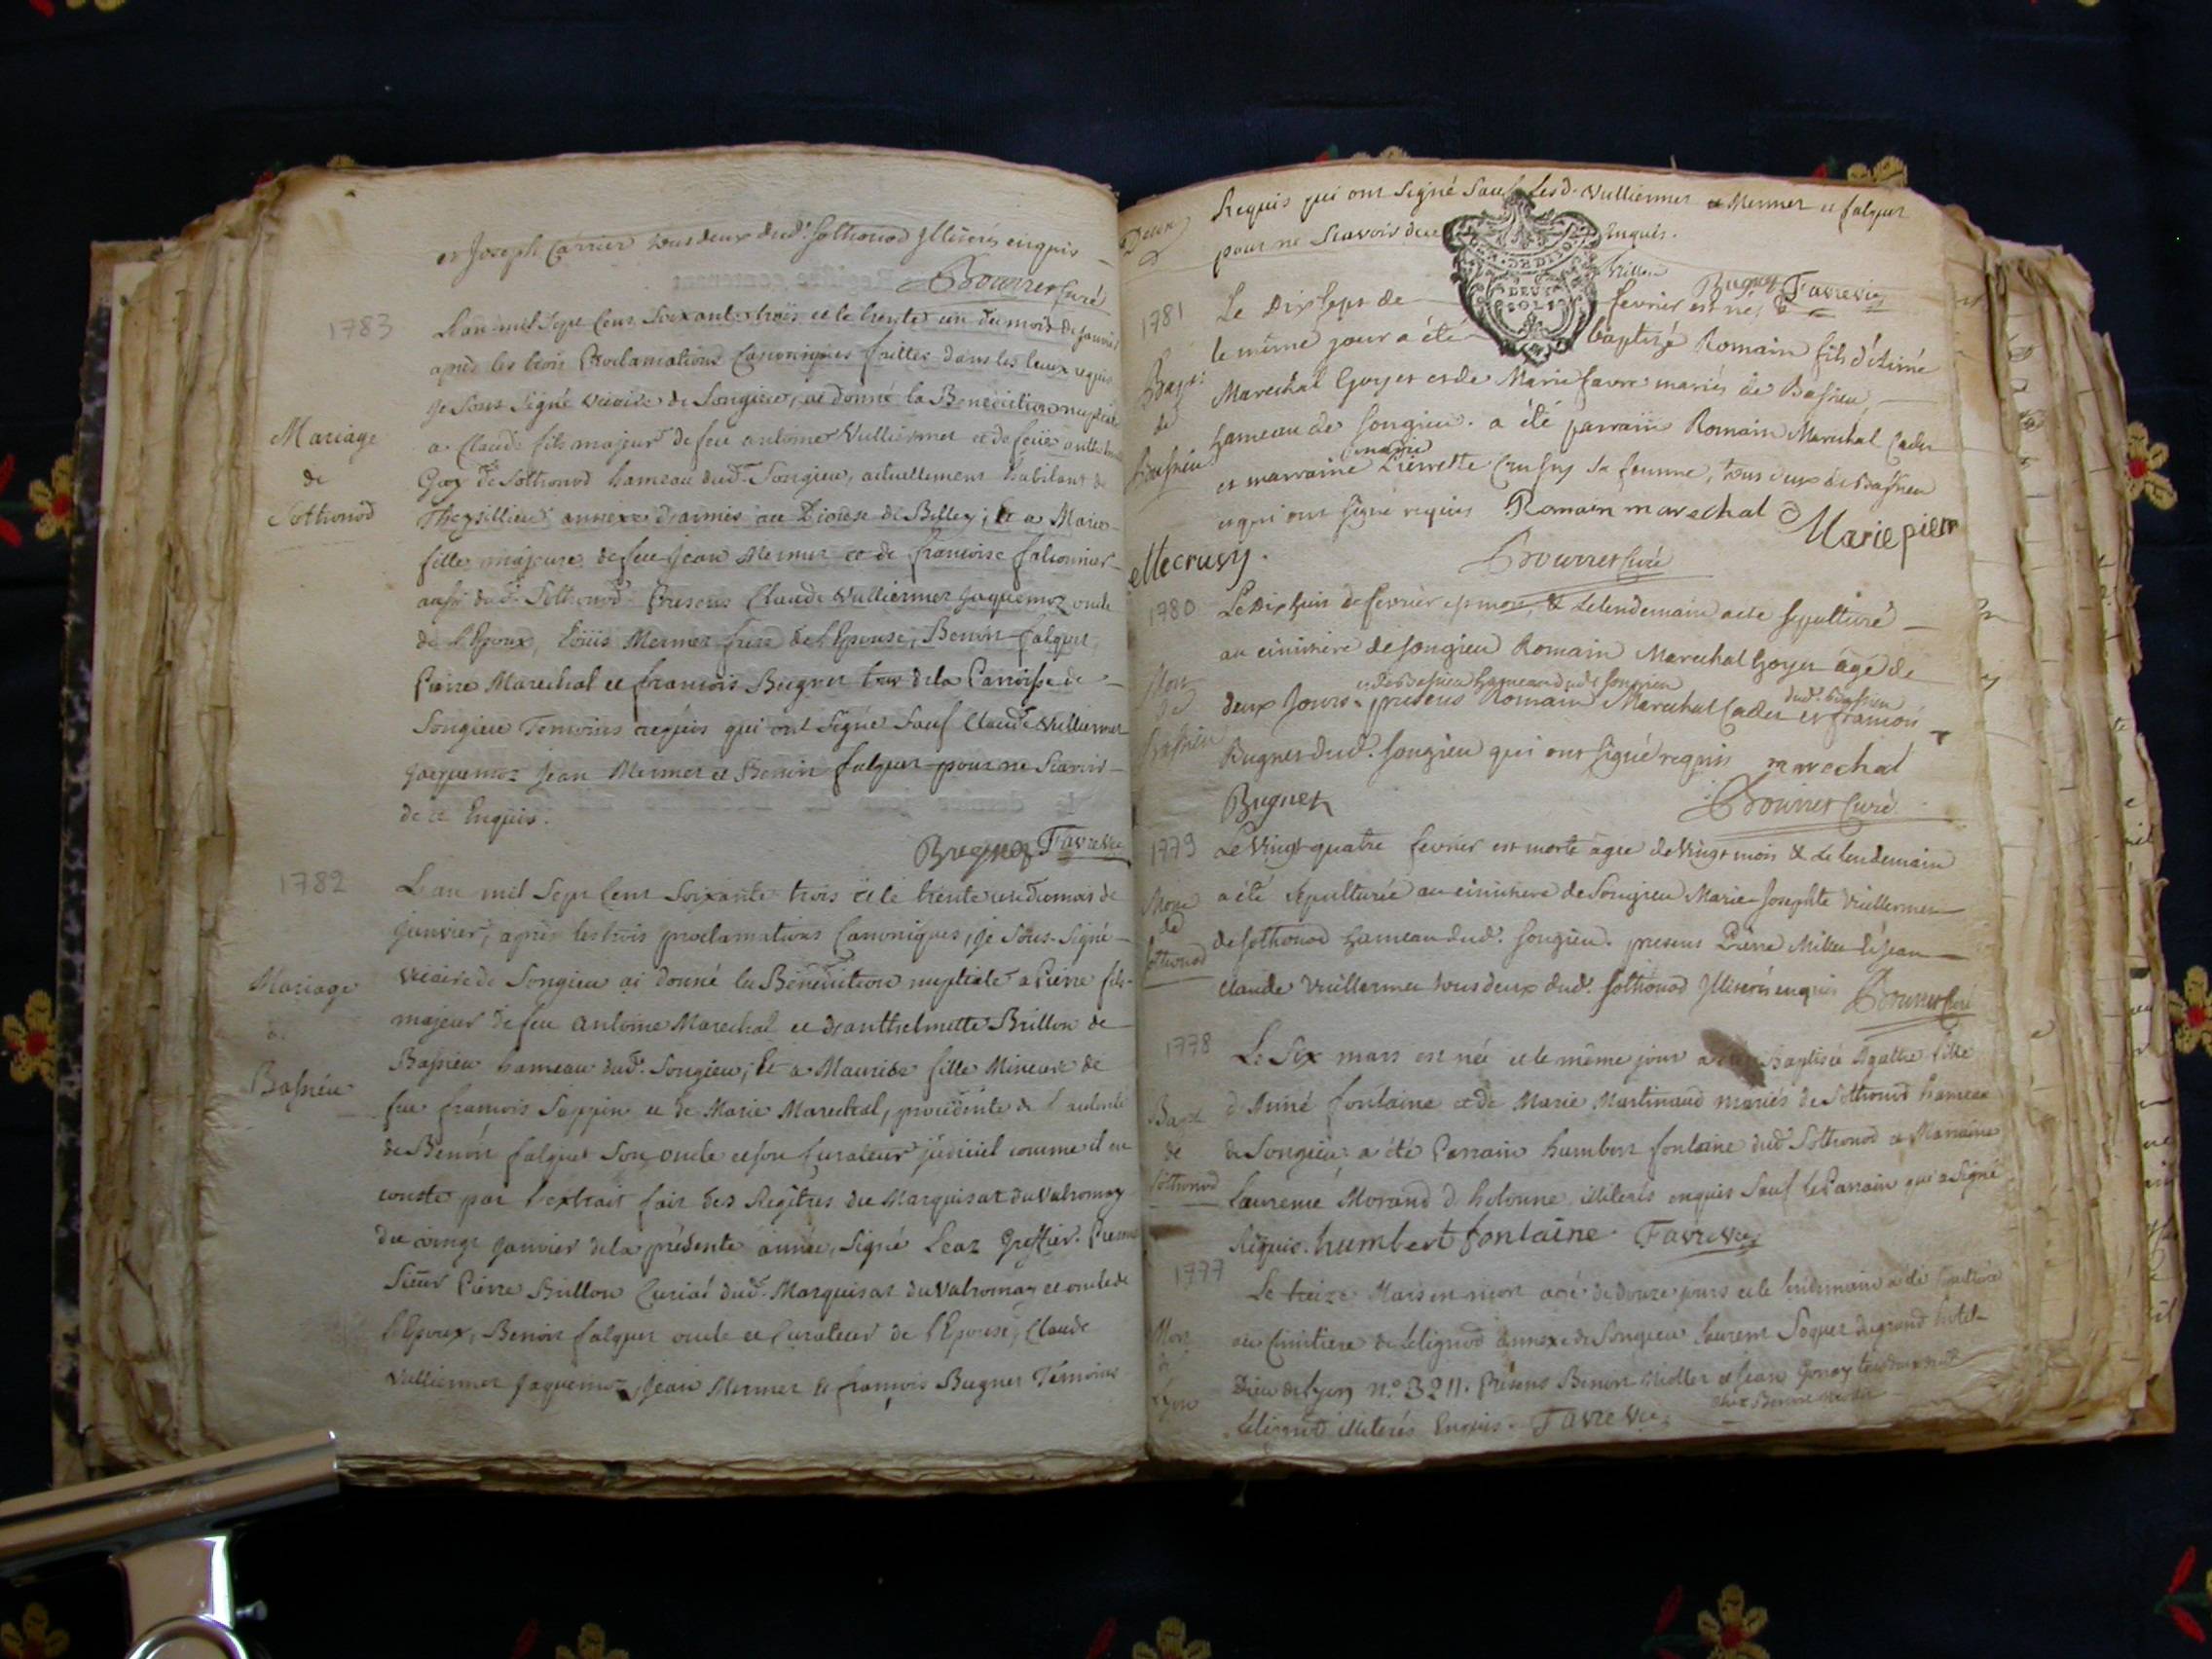 et Joseph Carrier tous deux dud. Sothonod illiterés enquis
Bourret Curé
1783
L'an mil sept cent soixante trois et le trente un du mois de janvier
après les trois Proclamations Canoniques faittes dans les lieux requis
je sous signé vicaire de Songieu, ai donné la Benediction nuptiale
Mariage
de
Sothonod
a Claude fils majeur de feu antoine Vulliermet et de feüe
Goy de Sothonod hameau dud. Songieu, actuellement habitant de
annexe d'aimés au Diocese de Belley; Et a Marie
fille majeure de feu Jean Mermet et de francoise falconnier
aussi dud. Sothonod. Presens Claude Vulliermet Jaquemoz oncle
de l'Epoux, Loüis Mermet frere de l'Epouse, Benoit falquet,
Pierre Marechal et francois Bugnet tous de la Parroisse de
Songieu Temoins requis qui ont signé sauf Claude Vulliermet
Jacquemoz Jean Mermet et Benoit falquet pour ne scavoir
de ce Enquis.
Bugnet Favre Vic
1782
L'an mil sept cent soixante trois et le trente un du mois de
janvier, après les trois proclamations Canoniques, je sous-signé
Mariage
de
Bassieu
vicaire de Songieu ai donné la Bénédiction nuptiale a Pierre fils
majeur de feu Antoine Marechal et d'anthelmette Brillon de
Bassieu hameau dud. Songieu; Et a Maurise fille Mineure de
feu francois Sappin et de Marie Marechal, procédente de l'autorité
de Benoit falquet son oncle et son Curateur judiciel comme il en
conste par l'extrait fait des Regîtres du Marquisat du Valromey
du vingt janvier de la présente année, signé Greffier. Presens
Sieur Pierre Brillon Curial dud. Marquisat du Valromey et oncle de
l'Epoux, Benoit falquet oncle et Curateur de l'Epouse, Claude
Vulliermet Jaquemoz, Jean Mermet et francois Bugnet Témoins
Deux
Requis qui ont signé sauf Lesd. Vulliermet et Mermet et falquet
pour ne scavoir de ce Enquis.
DEUX
SOLS
Brillon Bugnet Favre Vic
1781
Le Dix sept de fevrier est né, et
le même jour a été baptizé Romain fils d'Aimé
Bapt.
de
Bassieu
Marechal Goyet et de Marie favre mariés de Bassieu,
hameau de Songieu. a été parrain Romain Marechal Cadet
et marraine marie Pierrette Crussy sa femme, tous deux de Bassieu
et qui ont signé requis Romain marechal Marie pierr
ettecrusy. Bourret Curé
1780
Le Dix huit de fevrier est mort, & le lendemain a été sepulturé
au cimitière de Songieu Romain Marechal Goyet âgé de
Mort
de
Bassieu
et de Bassieu hameau dud. Songieu dud. Bassieu
deux jours. presens Romain Marechal Cadet et francois
Bugnet dud. Songieu qui ont signé requis marechal
Bugnet Bourret Curé
1779
Le Vingt-quatre fevrier est morte âgée de Vingt mois & le lendemain
Mort
de
Sothonod
a été sepulturée au cimitiere de Songieu Marie-Josephte Vuillermet
de Sothonod hameau dud. Songieu. presens Pierre Millet et Jean
claude Vuillermet tous deux dud. Sothonod illiterés enquis Bourret Curé
1778
Le Six mars est née et le même jour a été Baptisée Agathe fille
Bapt.
de
Sothonod
d'Aimé fontaine et de Marie Martinaud mariés de Sothonod hameau
de Songieu: a été Parrain humbert fontaine dud. Sothonod et Marraine
Laurence Morand d'hotonne illiterés enquis sauf le Parrain qui a signé
Requis. humbert fontaine Favre Vic
1777
Le treize Mars est mort agé de douze jours et le lendemain a été sepulturé
Mort
de
Lyon
au Cimitiere de Lilignod annexe de Songieu Laurent Soquet du grand hotel
Dieu de Lyon n.º 3211. Présens Benoit Miollet et Jean Gonay tous deux dud.
chez Benoit Miollet
Lilignod illiterés Enquis. Favre Vic.